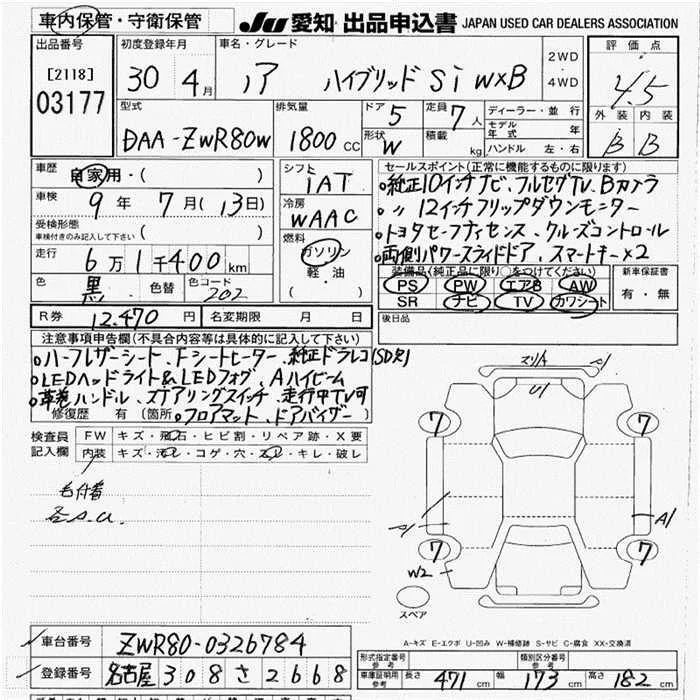 車内保管・守衛保管
JU 愛知 出品申込書 JAPAN USED CAR DEALERS ASSOCIATION
出品番号 [2118] 03177
初度登録年月 30 4月
車名・グレード ノア ハイブリッド Si W×B
2WD ・ 4WD
評価点 4.5
外装 内装
B B
型式 DAA-ZWR80W
排気量 1800 CC
ドア 5
形状 W
定員 7人
積載 kg
ディーラー・並行
モデル年式 年
ハンドル 左・右
車歴 自家用・( )
車検 9年 7月 (13日)
受検形態
車検付きのみ記入して下さい ( )
走行 6万1千400km
色 黒 色替 色コード 202
シフト IAT
冷房 WAAC
燃料 ガソリン・軽油・( )
セールスポイント(正常に機能するものに限ります)
•純正10インチナビ、フルセグTV、Bカメラ
•〃 12インチフリップダウンモニター
•トヨタセーフティセンス、クルーズコントロール
•両側パワースライドドア、スマートキー×2
装備品(純正品に限り○をつけてください)
PS PW エアB AW
SR ナビ TV カワシート
新車保証書
有・無
R券 12.470円
名変期限 月 日
後日品
注意事項申告欄(不具合内容等は具体的に記入して下さい)
•ハーフレザーシート、Fシートヒーター、純正ドラレコ(SD欠)
•LEDヘッドライト&LEDフォグ、Aハイビーム
•革巻ハンドル、ステアリングスイッチ、走行中TV可
修復歴 有 (箇所 •フロアマット、ドアバイザー)
検査員記入欄
FW キズ・飛石・ヒビ割・リペア跡・X要
内装 キズ・汚れ・コゲ・穴・スレ・キレ・破レ
スリA
U1
7 7
A1
7 7
W2
スペア
A-キズ E-エクボ U-凹み W-補修跡 S-サビ C-腐食 XX-交換済
車台番号 ZWR80-0326784
登録番号 名古屋 308 さ 2668
形式指定番号 参考
類別区分番号 参考
車庫証明用参考 長さ 471cm 幅 173cm 高さ 182cm